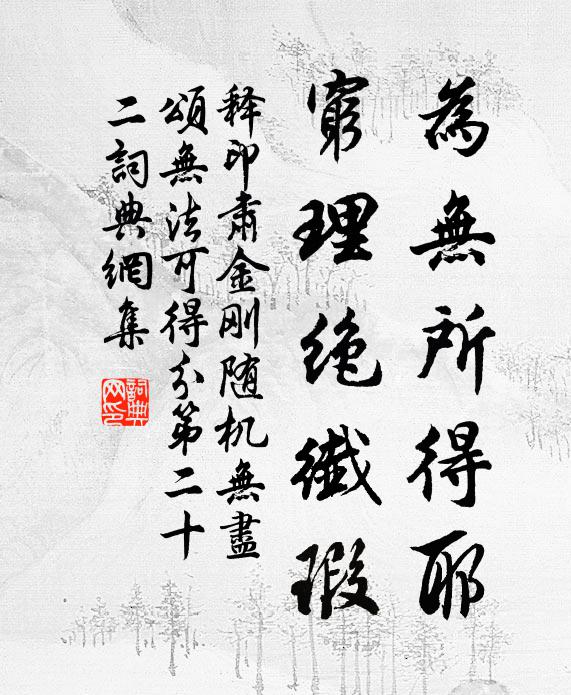 為無所得耶
窮理絶纖瑕
释印肃金刚随机無盡
頌無法可得分第二十
二詞典網集
詞典
网印